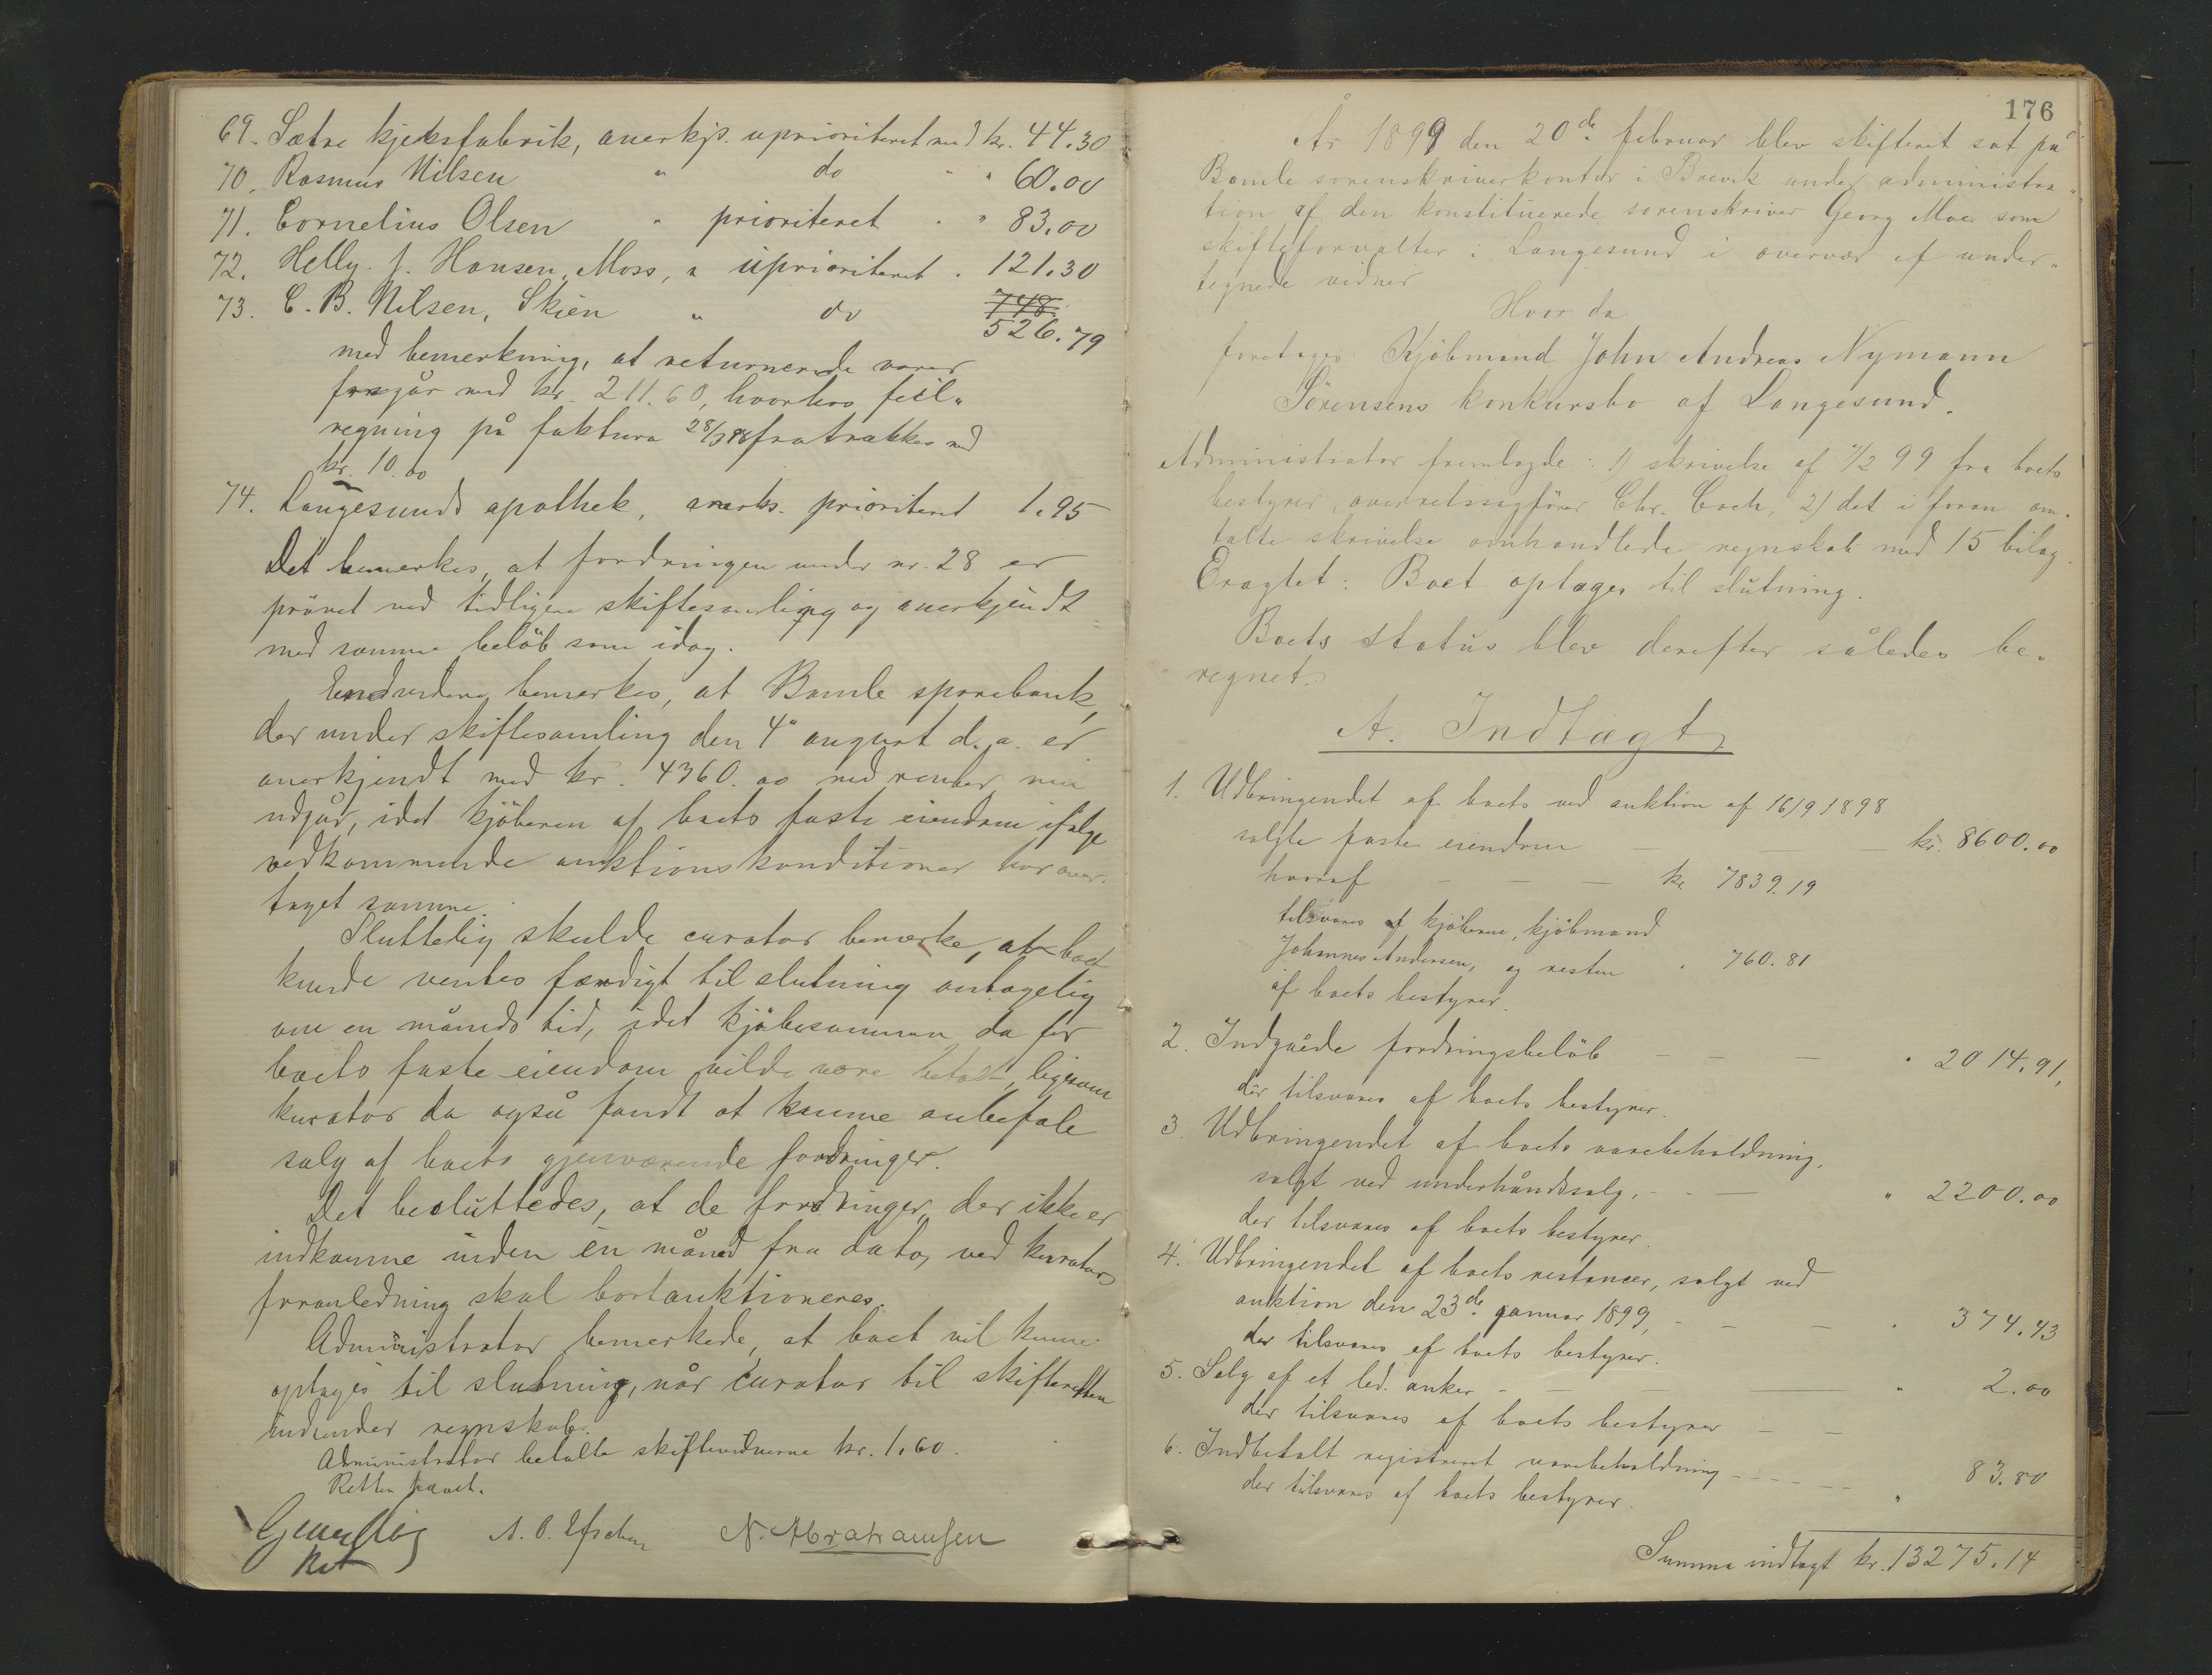 69. Sætre kjeksfabrik, anerkjs. uprioriteret med kr. 44.30
70. Rasmus Nilsen " do " " 60.00
71. Cornelius Olsen " prioriteret " " 83.00
72. Helly J. Hansen, Moss, " uprioriteret " 121.30
73. C. B. Nilsen, Skien " do 748.
526.79
med bemerkning, at returnerede varer
fragår med kr. 211.60, hvorhos feil-
regning på faktura 28/3 98 fratrækkes med
kr. 10.00
74. Langesunds apothek, anerks. prioriteret 1.95
Det bemerkes, at fordringen under nr. 28 er
prövet ved tidligere skiftesamling og anerkjendt
med samme belöb som idag.
Endvidere bemerkes, at Bamle sparebank,
der under skiftesamling den 4de august d. a. er
anerkjendt med kr. 4360.00 med renter, nu
udgår, idet kjöberen af boets faste eiendom ifølge
vedkommende auktionskonditioner har over-
taget samme.
Sluttelig skulde curator bemerke, at boet
kunde ventes færdigt til slutning antagelig
om en måneds tid, idet kjöbesummen da for
boets faste eiendom vilde være betalt, ligesom
kurator da også fandt at kunne anbefale
salg af boets gjenværende fordringer.
Det besluttedes, at de fordringer, der ikke er
indkomne inden en måned fra dato, ved kurators
foranledning skal bortauktioneres.
Administrator bemerkede, at boet vil kunne
optages til slutning, når curator til skifteretten
indsender regnskab.
Administrator betalte skiftevidnerne kr. 1.60.
Retten hævet.
N. Abrahamsen
176
År 1899 den 20de februar blev skifteret sat på
Bamle sorenskriverkontor i Brevik under administra-
tion af den konstituerede sorenskriver Georg Moe som
skifteforvalter i Langesund i overvær af under-
tegnede vidner
Hvor da
foretages: Kjöbmand John Andreas Nymann
Sörensens konkursbo af Langesund.
Administrator fremlagde: 1) skrivelse af /2 99 fra boets
bestyrer, overretssagförer Chr. Coch, 2) det i foran om-
talte skrivelse omhandlede regnskab med 15 bilag.
Eragtet: Boet optages til slutning.
Boets status blev derefter således be-
regnet:
A. Indtægt
1. Udbringendet af boets ved auktion af 16/9 1898
solgte faste eiendom — — — kr. 8600.00
hvoraf — — — kr. 7839.19
tilsvares af kjöberen, kjöbmand
Johannes Andersen, og resten " 760.81
af boets bestyrer.
2. Indgåede fordringsbelöb — — — " 2014.91,
der tilsvares af boets bestyrer.
3. Udbringendet af boets varebeholdning,
solgt ved underhåndssalg, — — " 2200.00
der tilsvares af boets bestyrer.
4. Udbringendet af boets restancer, solgt ved
auktion den 23de januar 1899, — — — " 374.43
der tilsvares af boets bestyrer.
5. Salg af et led. anker — — — — " 2.00
der tilsvares af boets bestyrer — —
6. Indbetalt registreret varebeholdning — — — " 83.80
der tilsvares af boets bestyrer.
Summa indtægt kr. 13275.14